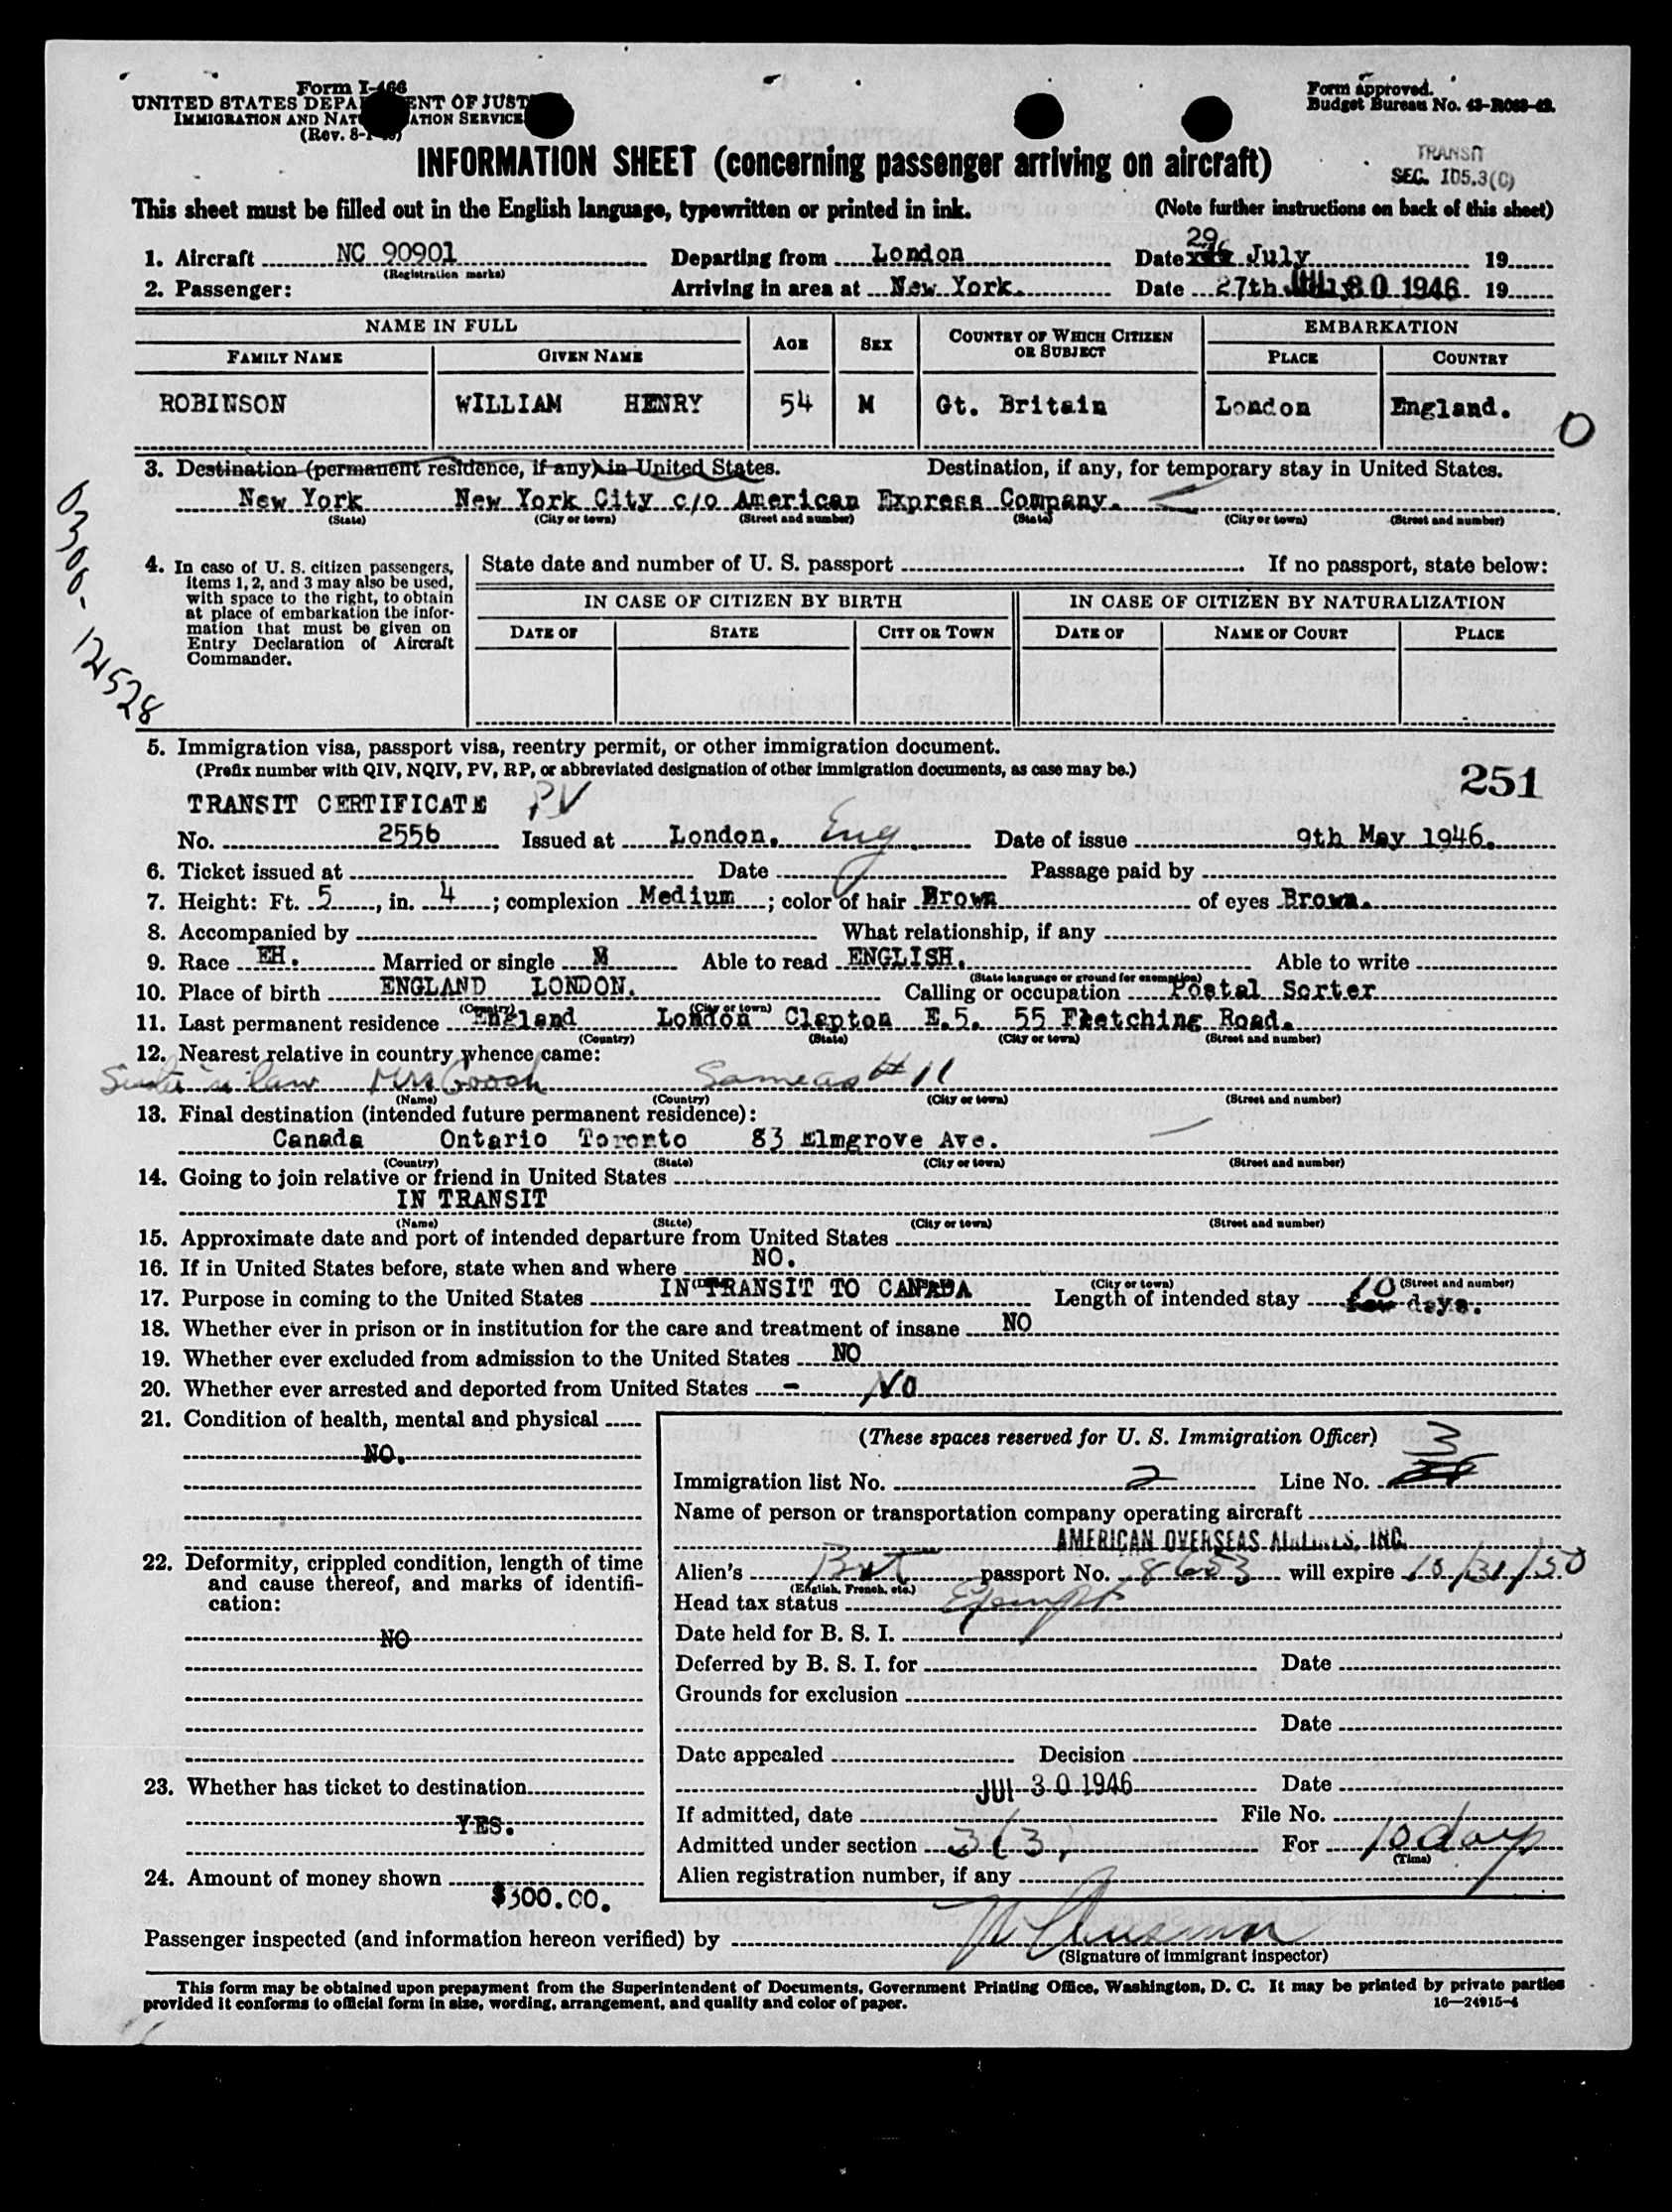 Form I-466
UNITED STATES DEPA ENT OF JUST
IMMIGRATION AND NAT ATION SERVICE
(Rev. 8-1- )
Form approved.
Budget Bureau No. 43-R063-42.
INFORMATION SHEET (concerning passenger arriving on aircraft)
TRANSIT
SEC. 105.3(C)
This sheet must be filled out in the English language, typewritten or printed in ink. (Note further instructions on back of this sheet)
1. Aircraft NC 90901 Departing from London Date 29 July 19
(Registration marks)
2. Passenger: Arriving in area at New York. Date 27th JUL 30 1946 19
NAME IN FULL AGE SEX COUNTRY OF WHICH CITIZEN OR SUBJECT EMBARKATION
FAMILY NAME GIVEN NAME PLACE COUNTRY
ROBINSON WILLIAM HENRY 54 M Gt. Britain London England.
0
3. Destination (permanent residence, if any) in United States. Destination, if any, for temporary stay in United States.
New York New York City c/o American Express Company.
(State) (City or town) (Street and number) (State) (City or town) (Street and number)
0300-12528
4. In case of U. S. citizen passengers, items 1, 2, and 3 may also be used, with space to the right, to obtain at place of embarkation the information that must be given on Entry Declaration of Aircraft Commander.
State date and number of U. S. passport If no passport, state below:
IN CASE OF CITIZEN BY BIRTH IN CASE OF CITIZEN BY NATURALIZATION
DATE OF STATE CITY OR TOWN DATE OF NAME OF COURT PLACE
5. Immigration visa, passport visa, reentry permit, or other immigration document.
(Prefix number with QIV, NQIV, PV, RP, or abbreviated designation of other immigration documents, as case may be.)
251
TRANSIT CERTIFICATE PV
No. 2556 Issued at London. Eng Date of issue 9th May 1946.
6. Ticket issued at Date Passage paid by
7. Height: Ft. 5, in. 4; complexion Medium; color of hair Brown of eyes Brown.
8. Accompanied by What relationship, if any
9. Race EH. Married or single M Able to read ENGLISH. Able to write
(State language or ground for exemption)
10. Place of birth ENGLAND LONDON. Calling or occupation Postal Sorter
(Country) (City or town)
11. Last permanent residence England London Clapton E.5. 55 Fletching Road.
(Country) (State) (City or town) (Street and number)
12. Nearest relative in country whence came:
Sister in law Mrs Gooch Same as #11
(Name) (Country) (City or town) (Street and number)
13. Final destination (intended future permanent residence):
Canada Ontario Toronto 83 Elmgrove Ave.
(Country) (State) (City or town) (Street and number)
14. Going to join relative or friend in United States
IN TRANSIT
(Name) (State) (City or town) (Street and number)
15. Approximate date and port of intended departure from United States
16. If in United States before, state when and where NO.
(City or town) (Street and number)
17. Purpose in coming to the United States IN TRANSIT TO CANADA Length of intended stay 10 days.
18. Whether ever in prison or in institution for the care and treatment of insane NO
19. Whether ever excluded from admission to the United States NO
20. Whether ever arrested and deported from United States - NO
21. Condition of health, mental and physical
NO.
22. Deformity, crippled condition, length of time and cause thereof, and marks of identification:
NO
23. Whether has ticket to destination
YES.
24. Amount of money shown
$300.00.
(These spaces reserved for U. S. Immigration Officer)
Immigration list No. 2 Line No. 3
Name of person or transportation company operating aircraft
AMERICAN OVERSEAS AIRLINES, INC.
Alien's Brit passport No. 8653 will expire 10/31/50
(English, French, etc.)
Head tax status Exempt
Date held for B. S. I.
Deferred by B. S. I. for Date
Grounds for exclusion
Date
Date appealed Decision
JUL 30 1946 Date
If admitted, date File No.
Admitted under section 3(3) For 10 days
(Time)
Alien registration number, if any
Passenger inspected (and information hereon verified) by
(Signature of immigrant inspector)
This form may be obtained upon prepayment from the Superintendent of Documents, Government Printing Office, Washington, D. C. It may be printed by private parties
provided it conforms to official form in size, wording, arrangement, and quality and color of paper. 16—24915-4